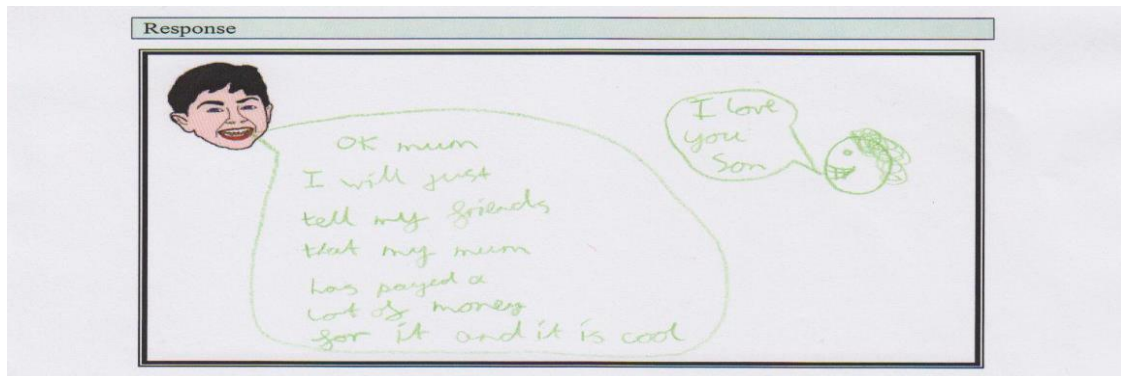 Response
OK mum
I will just
tell my friends
that my mum
has payed a
lot of money
for it and it is cool
I love
you
Son